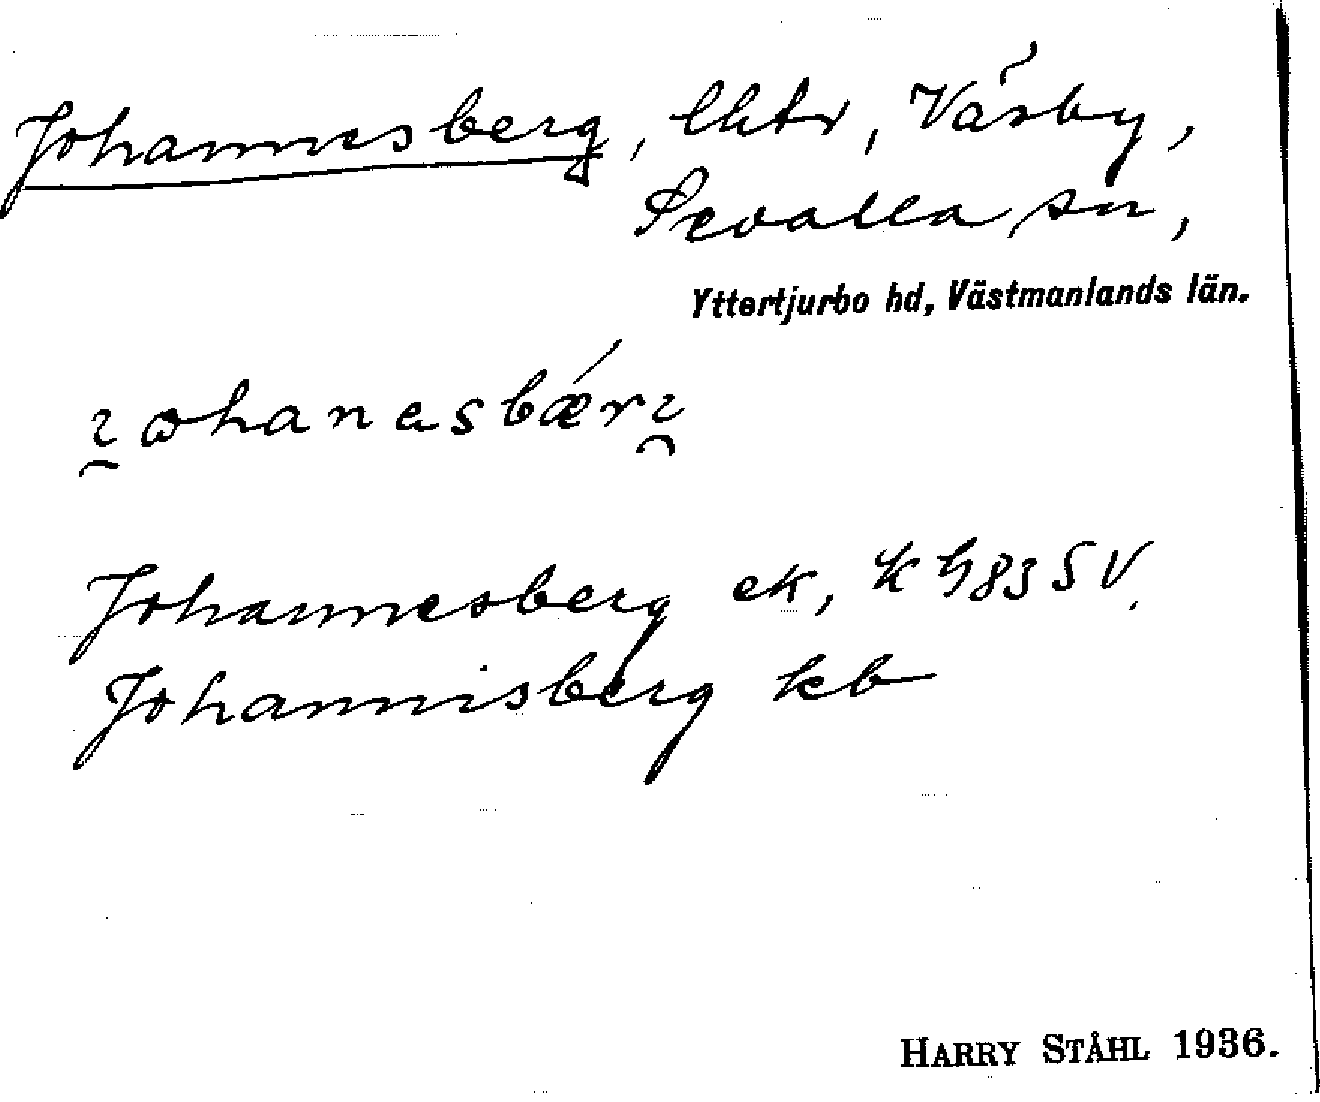 Johannesberg, lht, Väsby,
Sevalla sn,
Yttertjurbo hd, Västmanlands län.
Johannesberg ek, K G 83 S V.
Johannisberg kb
HARRY STÅHL 1936.